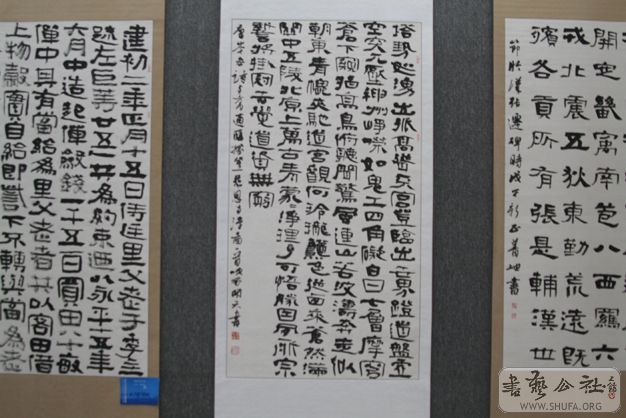 開定畿寓南苞八西羈六
戎北震五狄東勤荒遠既
殯各貢所有張是輔漢世
塔勢如湧出孤高聳天宮登臨出世界蹬道盤虛
空突兀壓神州崢嶸如鬼工四角礙白日七層摩穹
蒼下窺指高鳥俯聽聞驚風連山若波濤奔走似
朝東青槐夾馳道宮觀何玲瓏秋色從西來蒼然滿
關中五陵北原上萬古青濛濛淨理了可悟勝因夙所宗
誓將掛冠去覺道資無窮
建初二年正月十五日侍廷里父老于季主
疏左巨等廿五人共為約束迺以永平十五年
六月中造起僤斂錢一千五百買田八十畝
僤中其有當給為里父老者共以客田借
上物穀實自給即訾下不轉與當為老
書藝公社
WWW.SHUFA.ORG